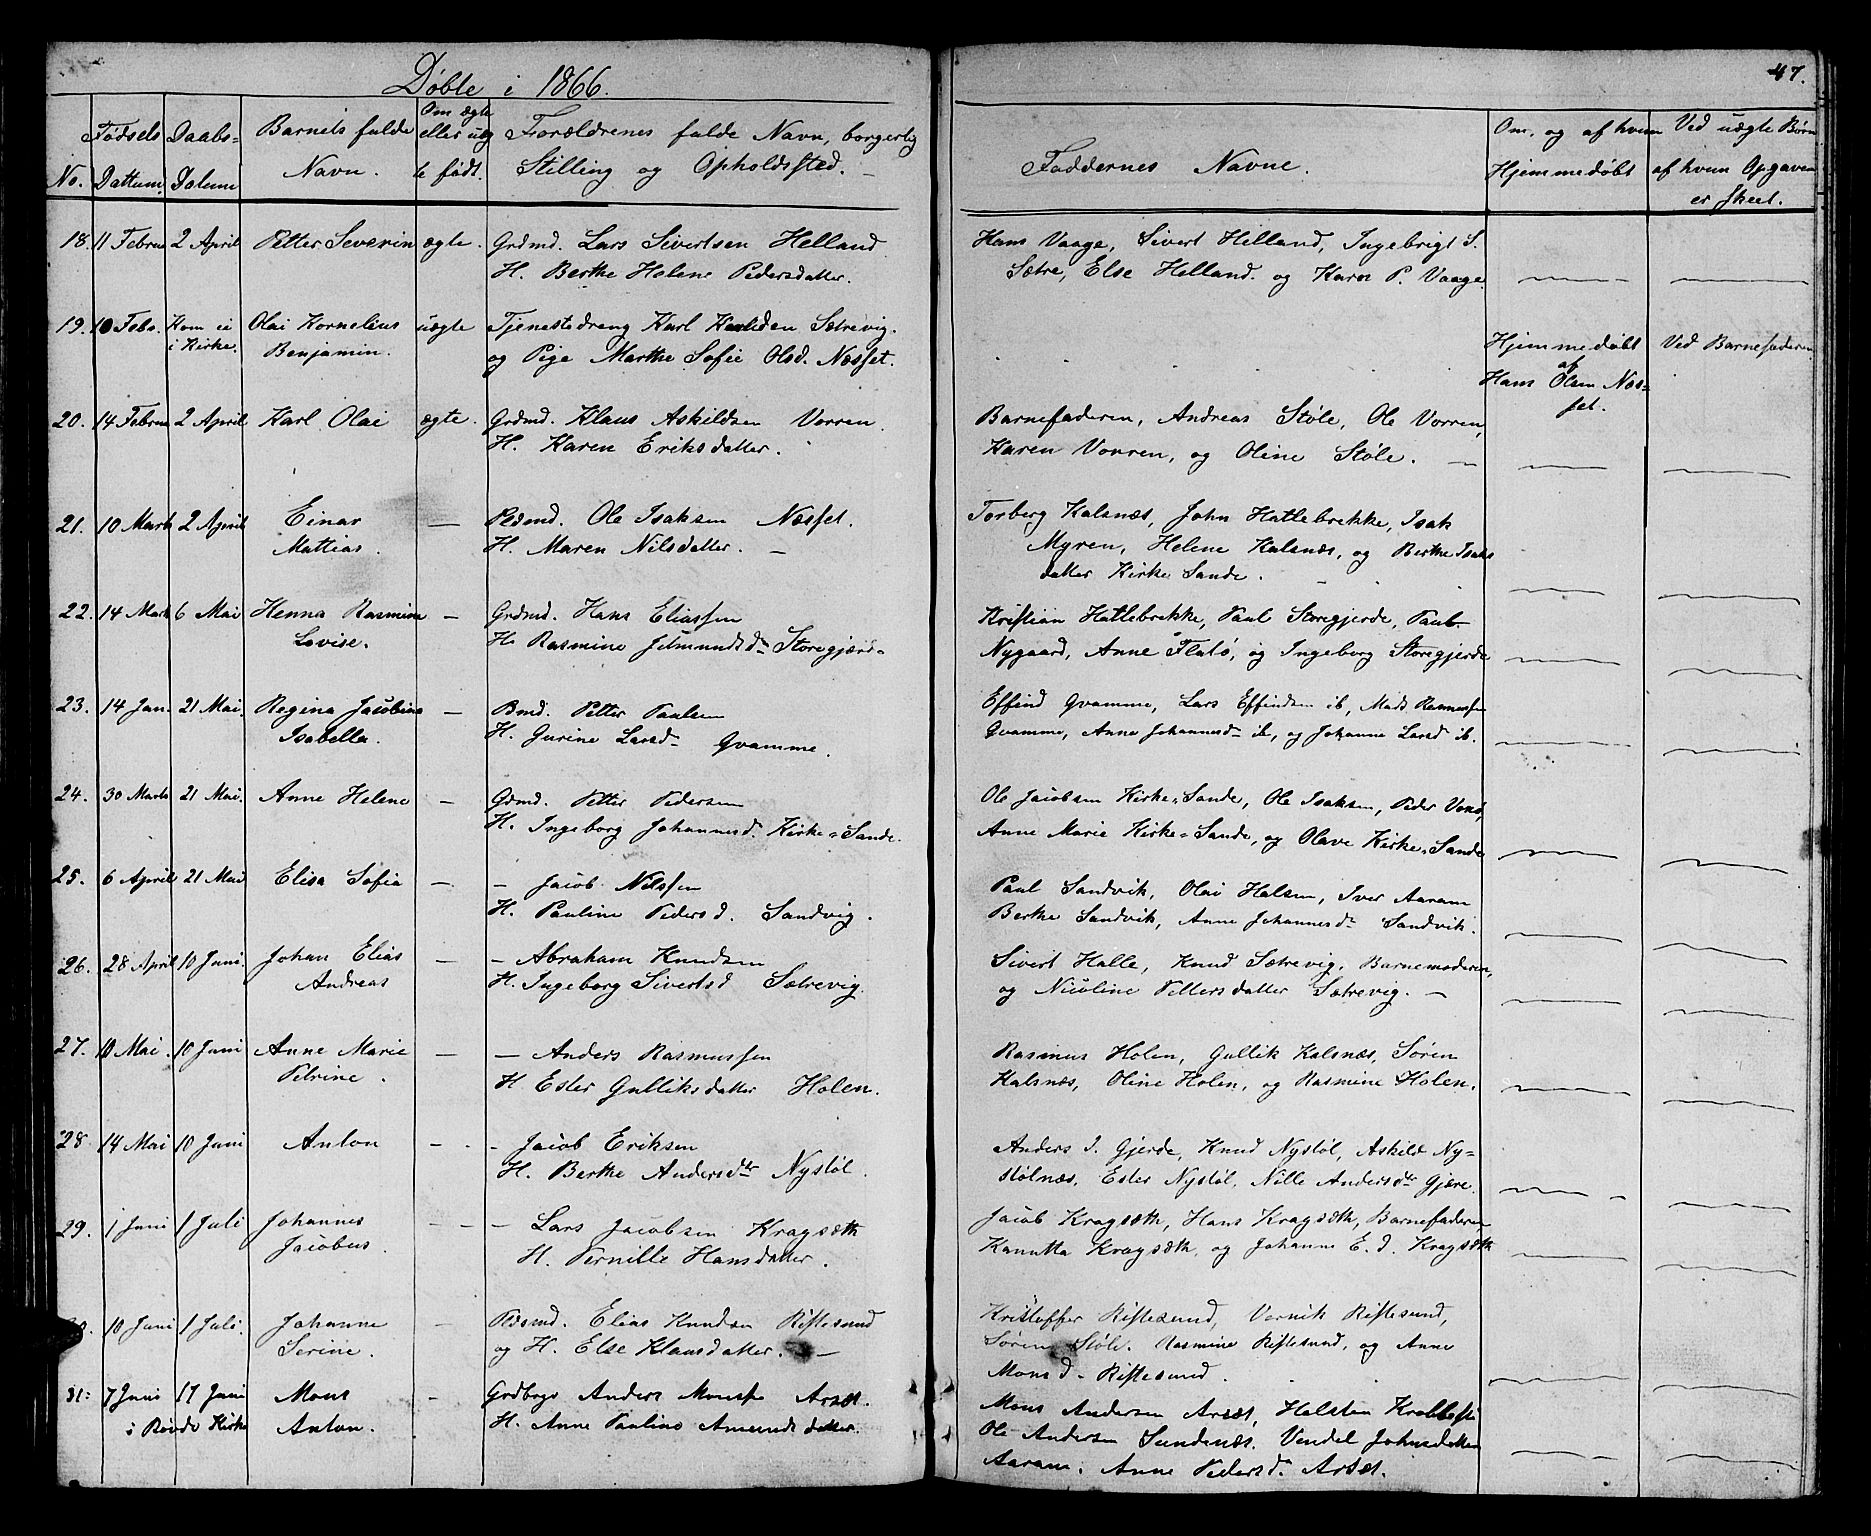 Døbte i 1866.
47.
No.
Fødsels Dattum.
Daabs- Datum
Barnets fulde Navn.
Om ægte eller uægte født.
Forældrenes fulde Navn, borgerlig Stilling og Opholdsted. -
Faddernes Navne.
Om, og af hvem Hjemmedøbt
Ved uægte Børn af hvem Opgaven er skeet.
18. 11 Febru 2 April Petter Severin ægte. Grdmd. Lars Sivertsen Helland
H. Berthe Helene Pedersdatter.
Hans Vaage, Sivert Helland, Ingebrigt S.
Sætre, Else Helland. og Karn P. Vaage.
19. 10 Febr. Kom ei i Kirke. Olai Kornelius uægte Tjenestedreng Karl Sætrevig.
Benjamin. og Pige Marthe Sofie Olsd. Næsset.
Hjemmedøbt af Hans Olsen Næs-
set.
Ved Barnefaderen
20. 14 Febru 2 April Karl Olai ægte. Grdmd. Klaus Askildsen Vorren.
H. Karen Eriksdatter.
Barnefaderen, Andreas Støle, Ole Vorren,
Karen Vorren, og Oline Støle. -
21. 10 Marts 2 April Einar - Pldsmd. Ole Isaksen Næsset.
Mattias. H. Maren Nilsdatter. -
Torberg Kalsnæs, John Hattebrekke, Isak
Myren, Helene Kalsnæs, og Berthe Isaks
datter Kirke Sande.
22. 14 Marts 6 Mai Henna Rasmine - Grdmd. Hans Eliassen
Lovise. H. Rasmine Jetmundsd. Storegjærde
Kristian Hattebrekke, Paul Storegjerde, Paul
Nygaard, Anne Flatø, og Ingeborg Storegjerde
23. 14 Jan. 21 Mai. Regina Jacobine - Bmd. Petter Paulsen
Isabella. H. Gurine Larsd. Gvamme.
Effind Gvamme, Lars Effindsen ib, Mads Rasmussen
Gvamme, Anne Johannesd. ib, og Johanne Larsd ib.
24. 30 Marts 21 Mai. Anne Helene - Grdmd. Petter Pedersen
H. Ingeborg Johannesd. Kirke-Sande.
Ole Jacobsen Kirke-Sande, Ole Isaksen, Peder
Anne Marie Kirke-Sande, og Olave Kirke-Sande
25. 6 April 21 Mai Elisa Sofia - - Jacob Nilssen
H. Pauline Pedersd. Sandvig.
Paul Sandvik, Olai Halsen, Iver Aaram
Berthe Sandvik, Anne Johannesd. Sandvik.
26. 28 April 10 Juni. Johan Elias - - Abraham Knudsen
Andreas H. Ingeborg Sivertsd Sætrevig.
Sivert Halle, Knud Sætrevig, Barnemoderen,
og Nicoline Pettersdatter Sætrevig. -
27. 10 Mai. 10 Juni Anne Marie - - Anders Rasmussen
Petrine. H Ester Gulliksdatter Holen.
Rasmus Holen, Gullik Kalsnæs, Søren
Kalsnæs, Oline Holen, og Rasmine Holen.
28 14 Mai 10 Juni Anton - - Jacob Eriksen
H. Berthe Andersdtr Nystøl.
Anders I. Gjerde, Knud Nystøl, Askild Ny-
stølnæs, Ester Nystøl, Nille Andersdtr Gjære.
29. 1 Juni 1 Juli Johannes - - Lars Jacobsen Kragsæth
Jacobus. H. Pernille Hansdatter.
Jacob Kragsæth, Hans Kragsæth, Barnefaderen
Kanutta Kragsæth, og Johanne E. d. Kragsæth
10 Juni 1 Juli. Johanne - Pldsmd. Elias Knudsen Riftesund
Serine. og H. Else Klausdatter. -
Kristoffer Riftesund, Vernik Riftesund,
Søren Støle. Rasmine Riftesund, og Anne
Monsd. Riftesund.
31. 7 Juni 17 Juni Mons - Grdbrgr Anders Monsen Arsæt.
i Rovde Kirke Anton. H. Anne Pauline Amundsdatter.
Mons Andersen Arsæt, Halsten
Ole Andersen Sundenæs. Vendel Johnsdatter
Aaram. Anne Pedersd. Arsæt.